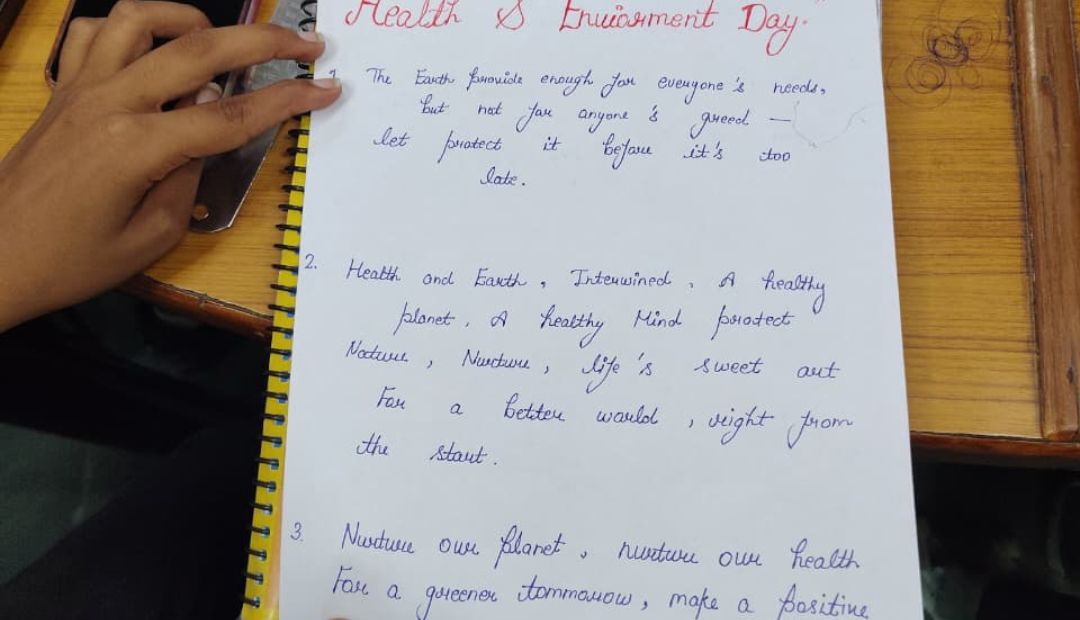 Health & Enviorment Day."
1 The Earth provide enough for everyone's needs,
but not for anyone's greed —
let protect it before it's too
late.
2. Health and Earth, Interwined, A healthy
planet, A healthy Mind protect
Nature, Nurture, life's sweet art
For a better world, right from
the start.
3. Nurture our planet, nurture our health
For a greener tommorow, make a positive